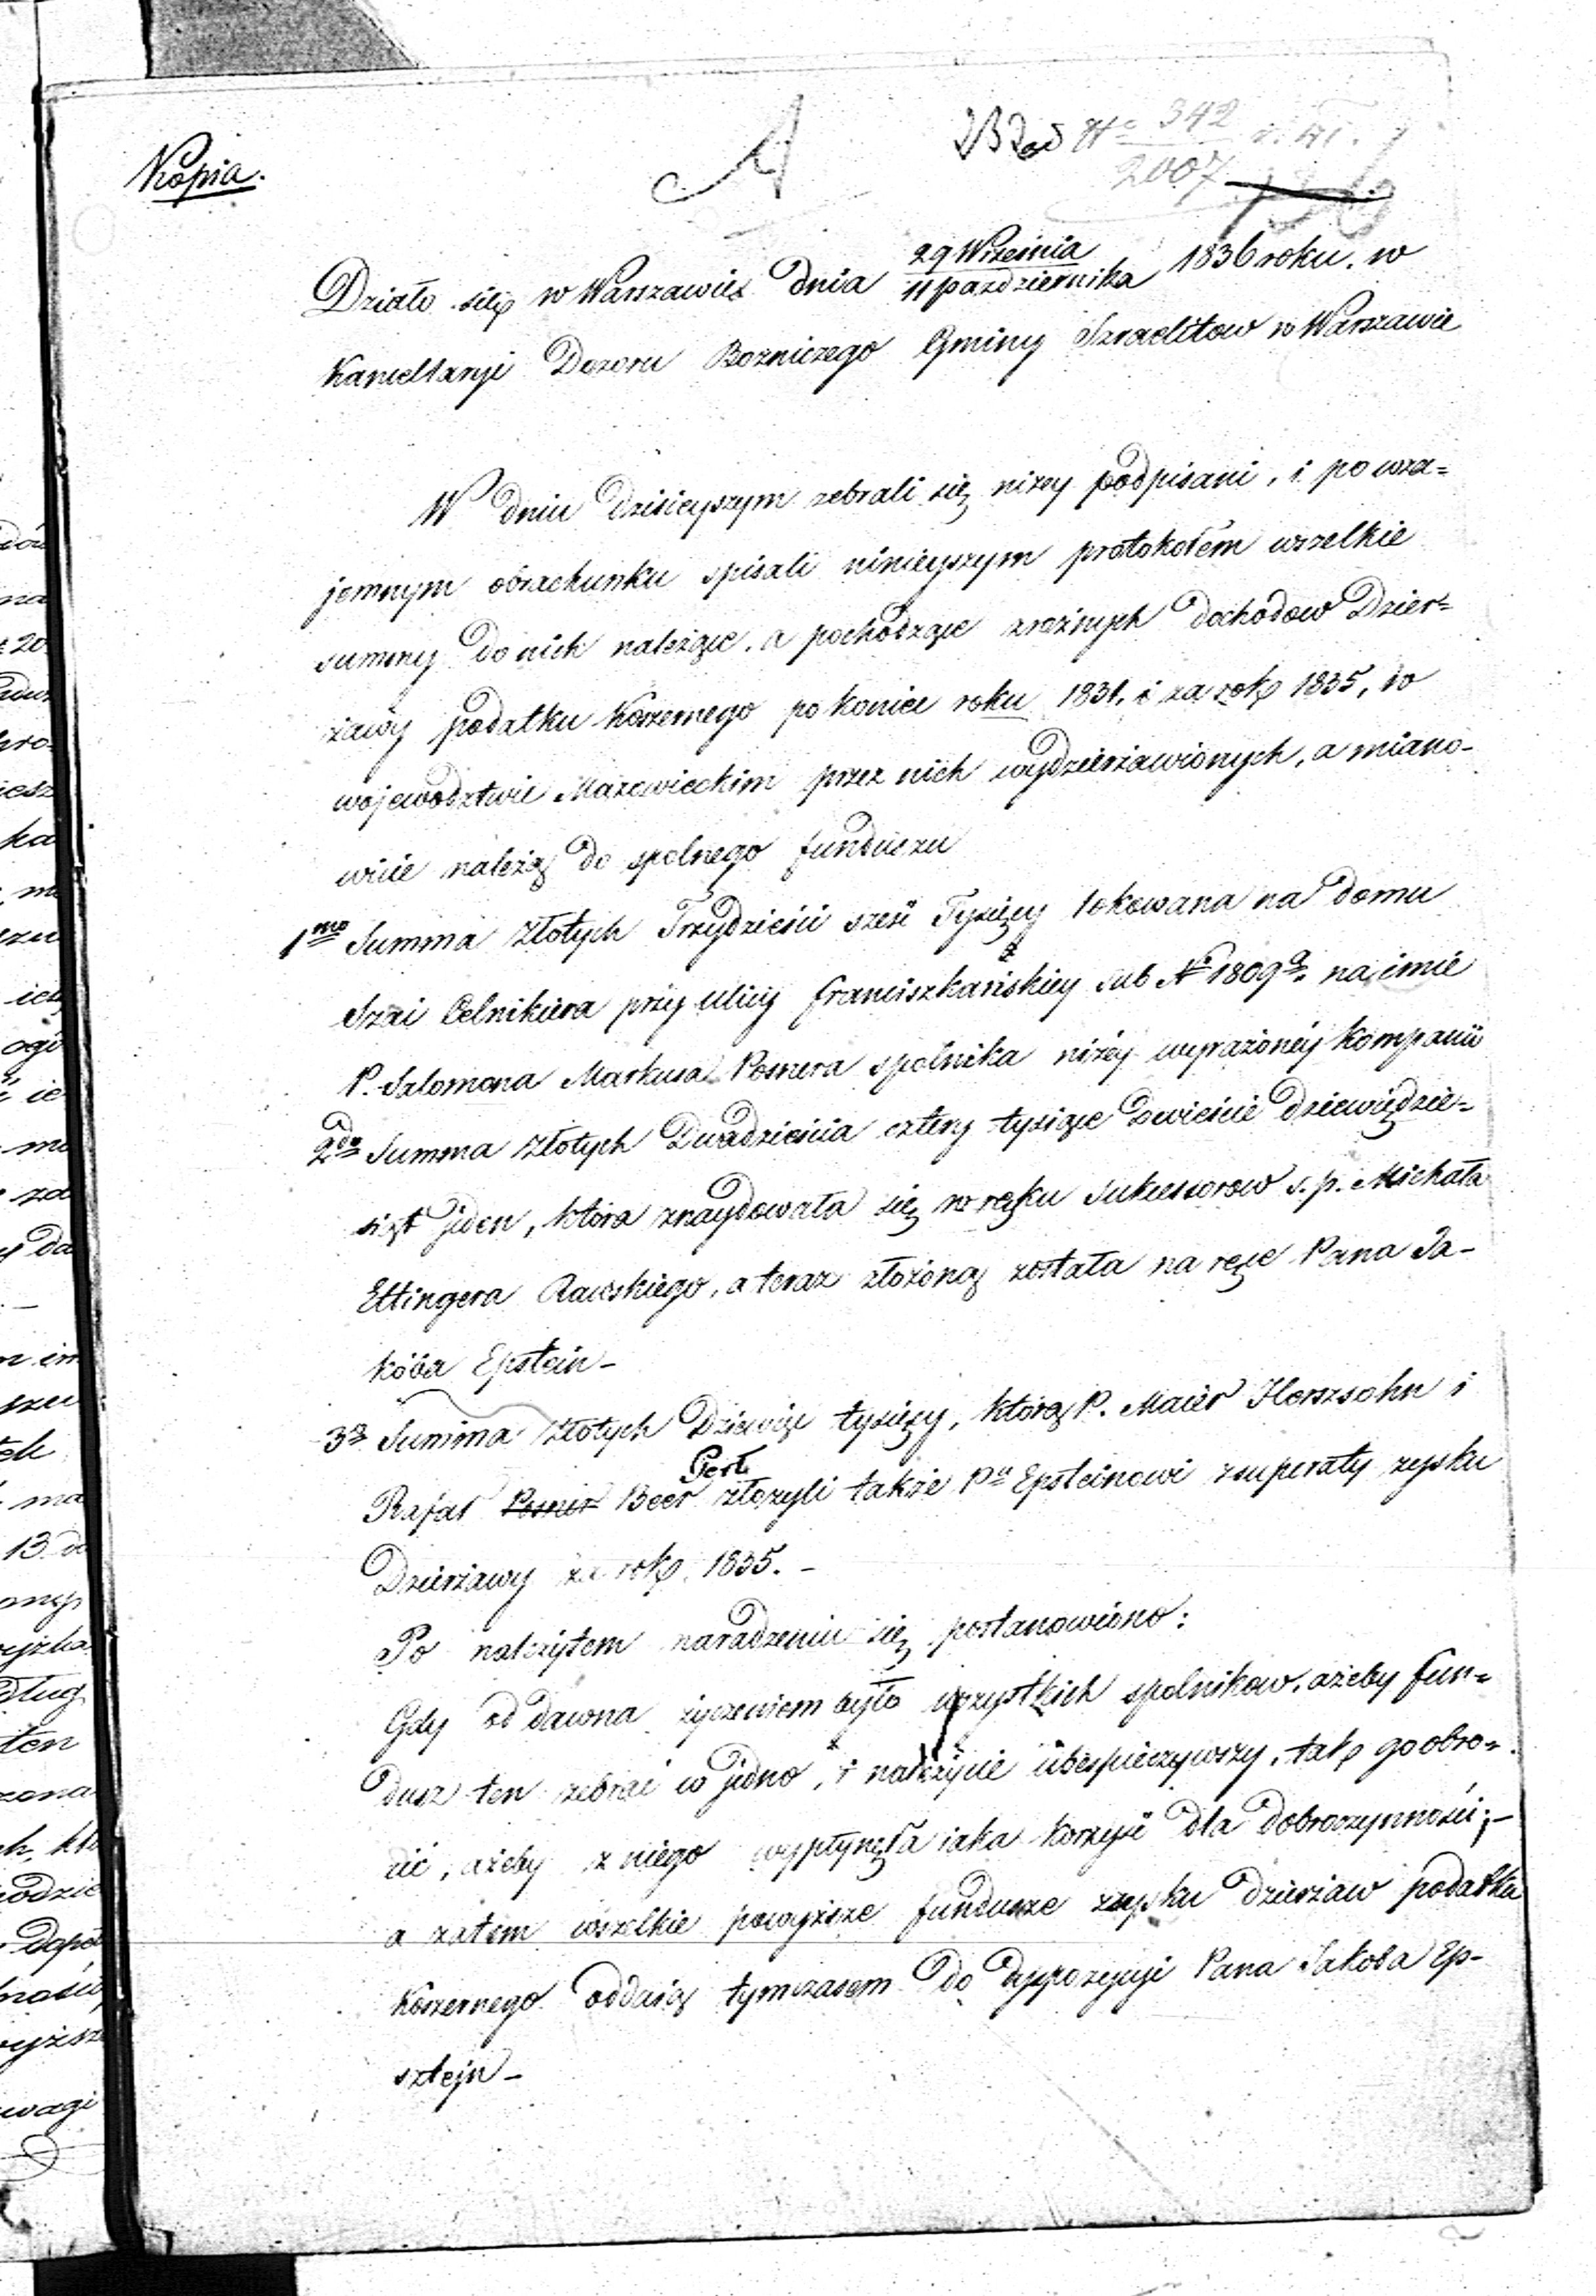 Kopia.
A
342
2007
Działo się w Warszawie dnia 29 Września / 11 Pazdziernika 1836 roku. w
Kancellaryi Dozoru Bozniczego Gminy Izraelitow w Warszawie
W dniu dzisieyszym zebrali się niżey podpisani, i po wza=
jemnym obrachunku spisali ninieyszym protokołem wszelkie
summy do nich należące, a pochodzące z roźnych dochodow Dzier=
żawy podatku Koszernego po koniec roku 1834, i za rok 1835, w
wojewodztwie Mazowieckim przez nich wydzierżawionych, a miano-
wicie należą do spolnego funduszu
1mo Summa złotych Trzydzieści sześć Tysięcy lokowana na domu
Szai Celnikiera przy ulicy Franciszkańskiey sub No 1809a. na imie
P. Salomona Markusa Posnera społnika niżey wyrażoney kompanii
2do Summa złotych Dwadzieścia cztery tysiące dwieście dziewiędzie=
siąt jeden, która znaydowała się w ręku sukcessorow s. p. Michała
Ettingera Rawskiego, a teraz złożoną została na ręce Pana Ja-
kóba Epstein-
3o Summa złotych Dziewięć tysięcy, którą P. Maier Herszsohn i
Rafał Posner Beer Perl złożyli także Pu Epsteinowi z superaty zysku
Dzierżawy za rok 1835. -
Po należytem naradzeniu się postanowiono:
Gdy od dawna życzeniem było wszystkich spolnikow, ażeby fun=
dusz ten zebrać w jedno, i należycie ubespieczywszy, tak go obro=
cić, ażeby z niego wypłynęła iaka korzyść dla dobroczynności; -
a zatem wszelkie powyższe fundusze z zysku dzierżaw podatku
Koszernego oddaią tymczasem do dyspozycyi Pana Jakoba Ep-
sztejn -